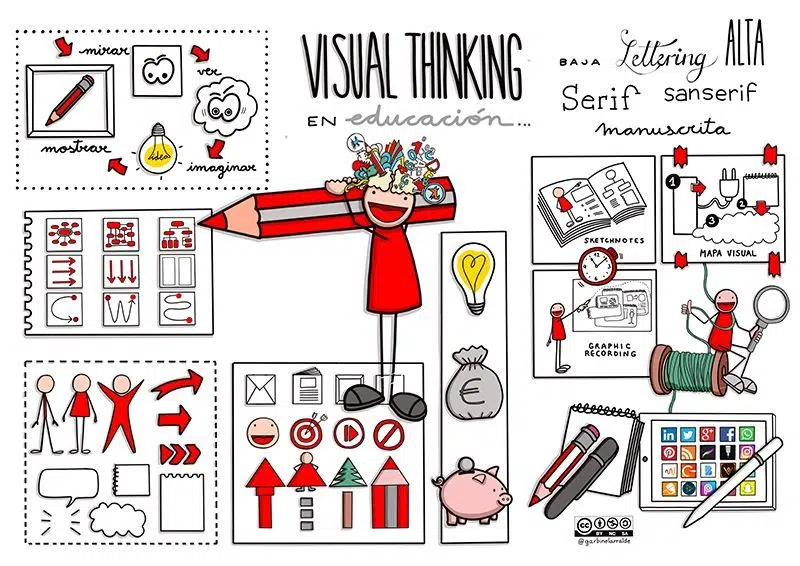 mirar
ver
imaginar
ideas
mostrar
VISUAL THINKING
EN educación...
BAJA Lettering ALTA
Serif sanserif
manuscrita
SKETCHNOTES
1
2
3
MAPA VISUAL
GRAPHIC
RECORDING
€
cc
BY NC SA
@garbinelarralde